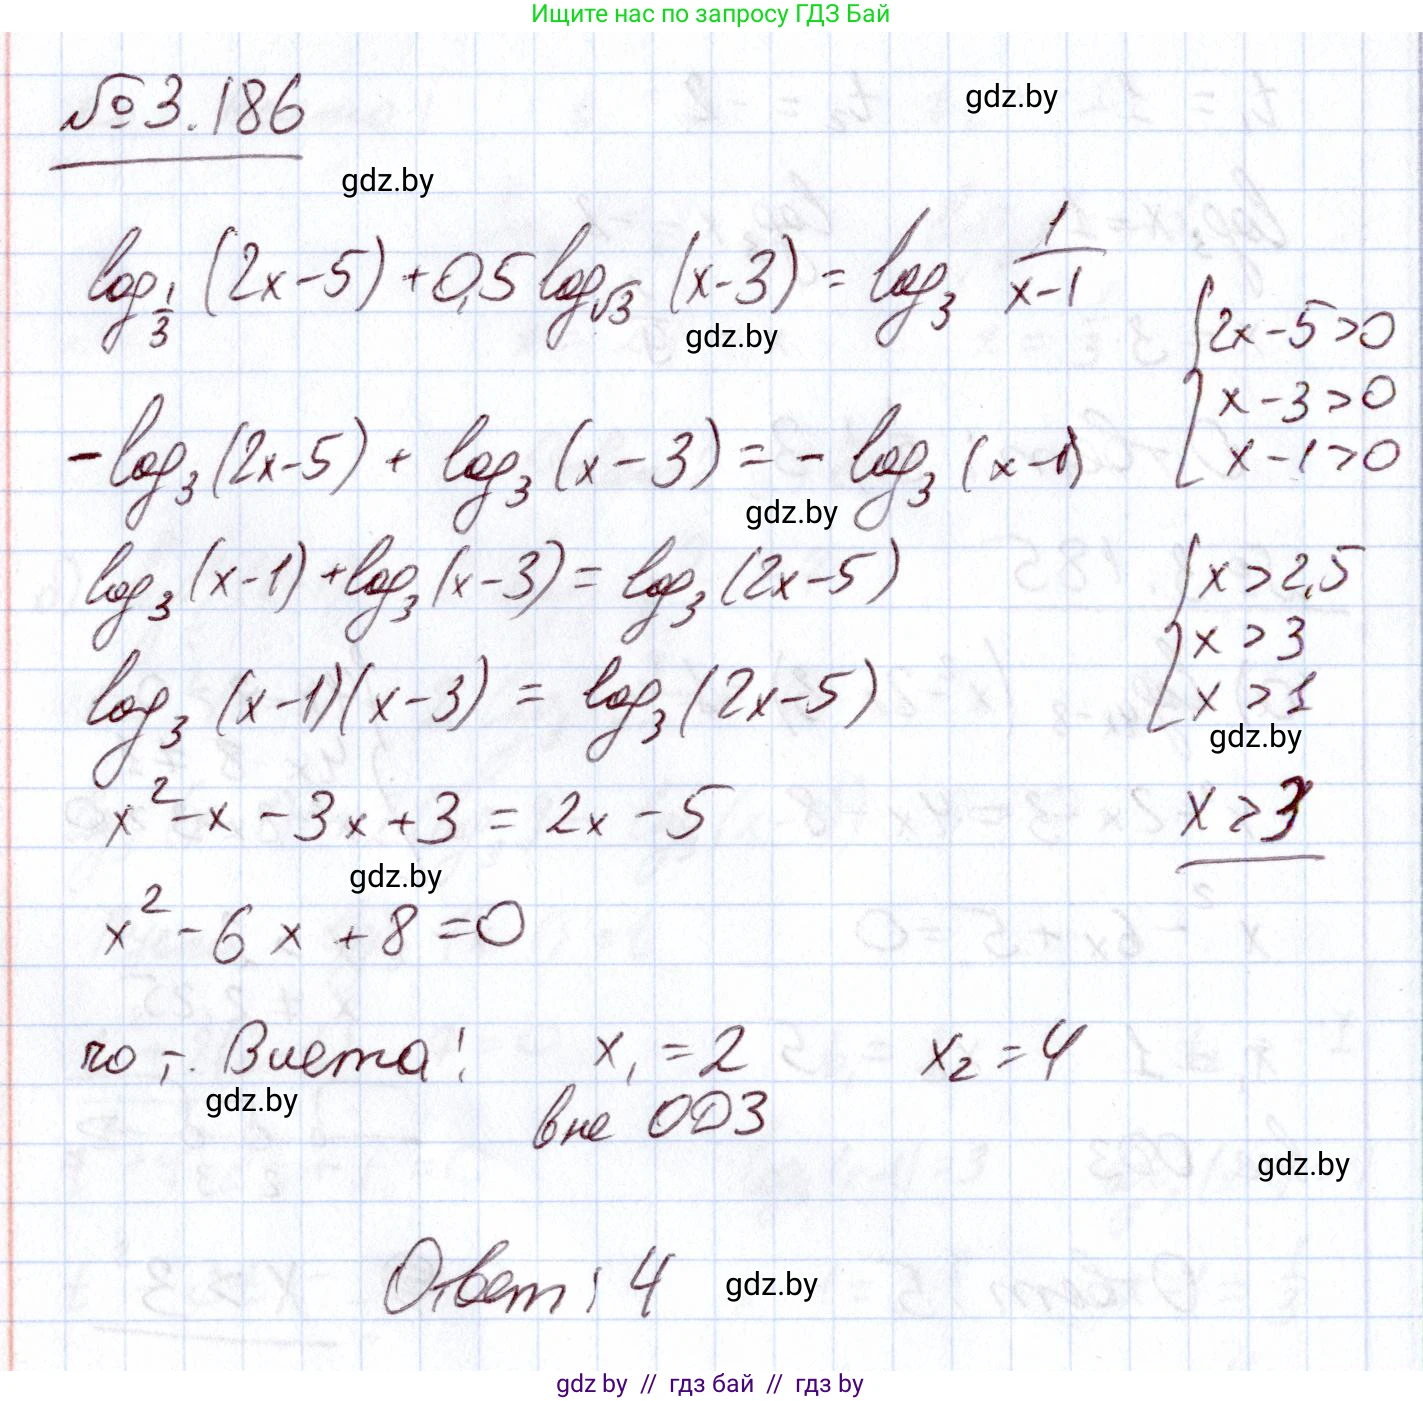 Ищите нас по запросу ГДЗ Бай
№3.186
gdz.by
gdz.by
log_{1/3} (2x-5) + 0,5 log_{√3} (x-3) = log_3 1/(x-1)
gdz.by
{2x-5>0
x-3>0
x-1>0
-log_3 (2x-5) + log_3 (x-3) = -log_3 (x-1)
gdz.by
log_3 (x-1) + log_3 (x-3) = log_3 (2x-5)
{x>2,5
x>3
x>1
log_3 (x-1)(x-3) = log_3 (2x-5)
gdz.by
x² - x - 3x + 3 = 2x - 5
x>3
gdz.by
x² - 6x + 8 = 0
по т. Виета: x₁ = 2 x₂ = 4
gdz.by
вне ОДЗ
gdz.by
Ответ: 4
gdz.by
gdz by // гдз бай // гдз by